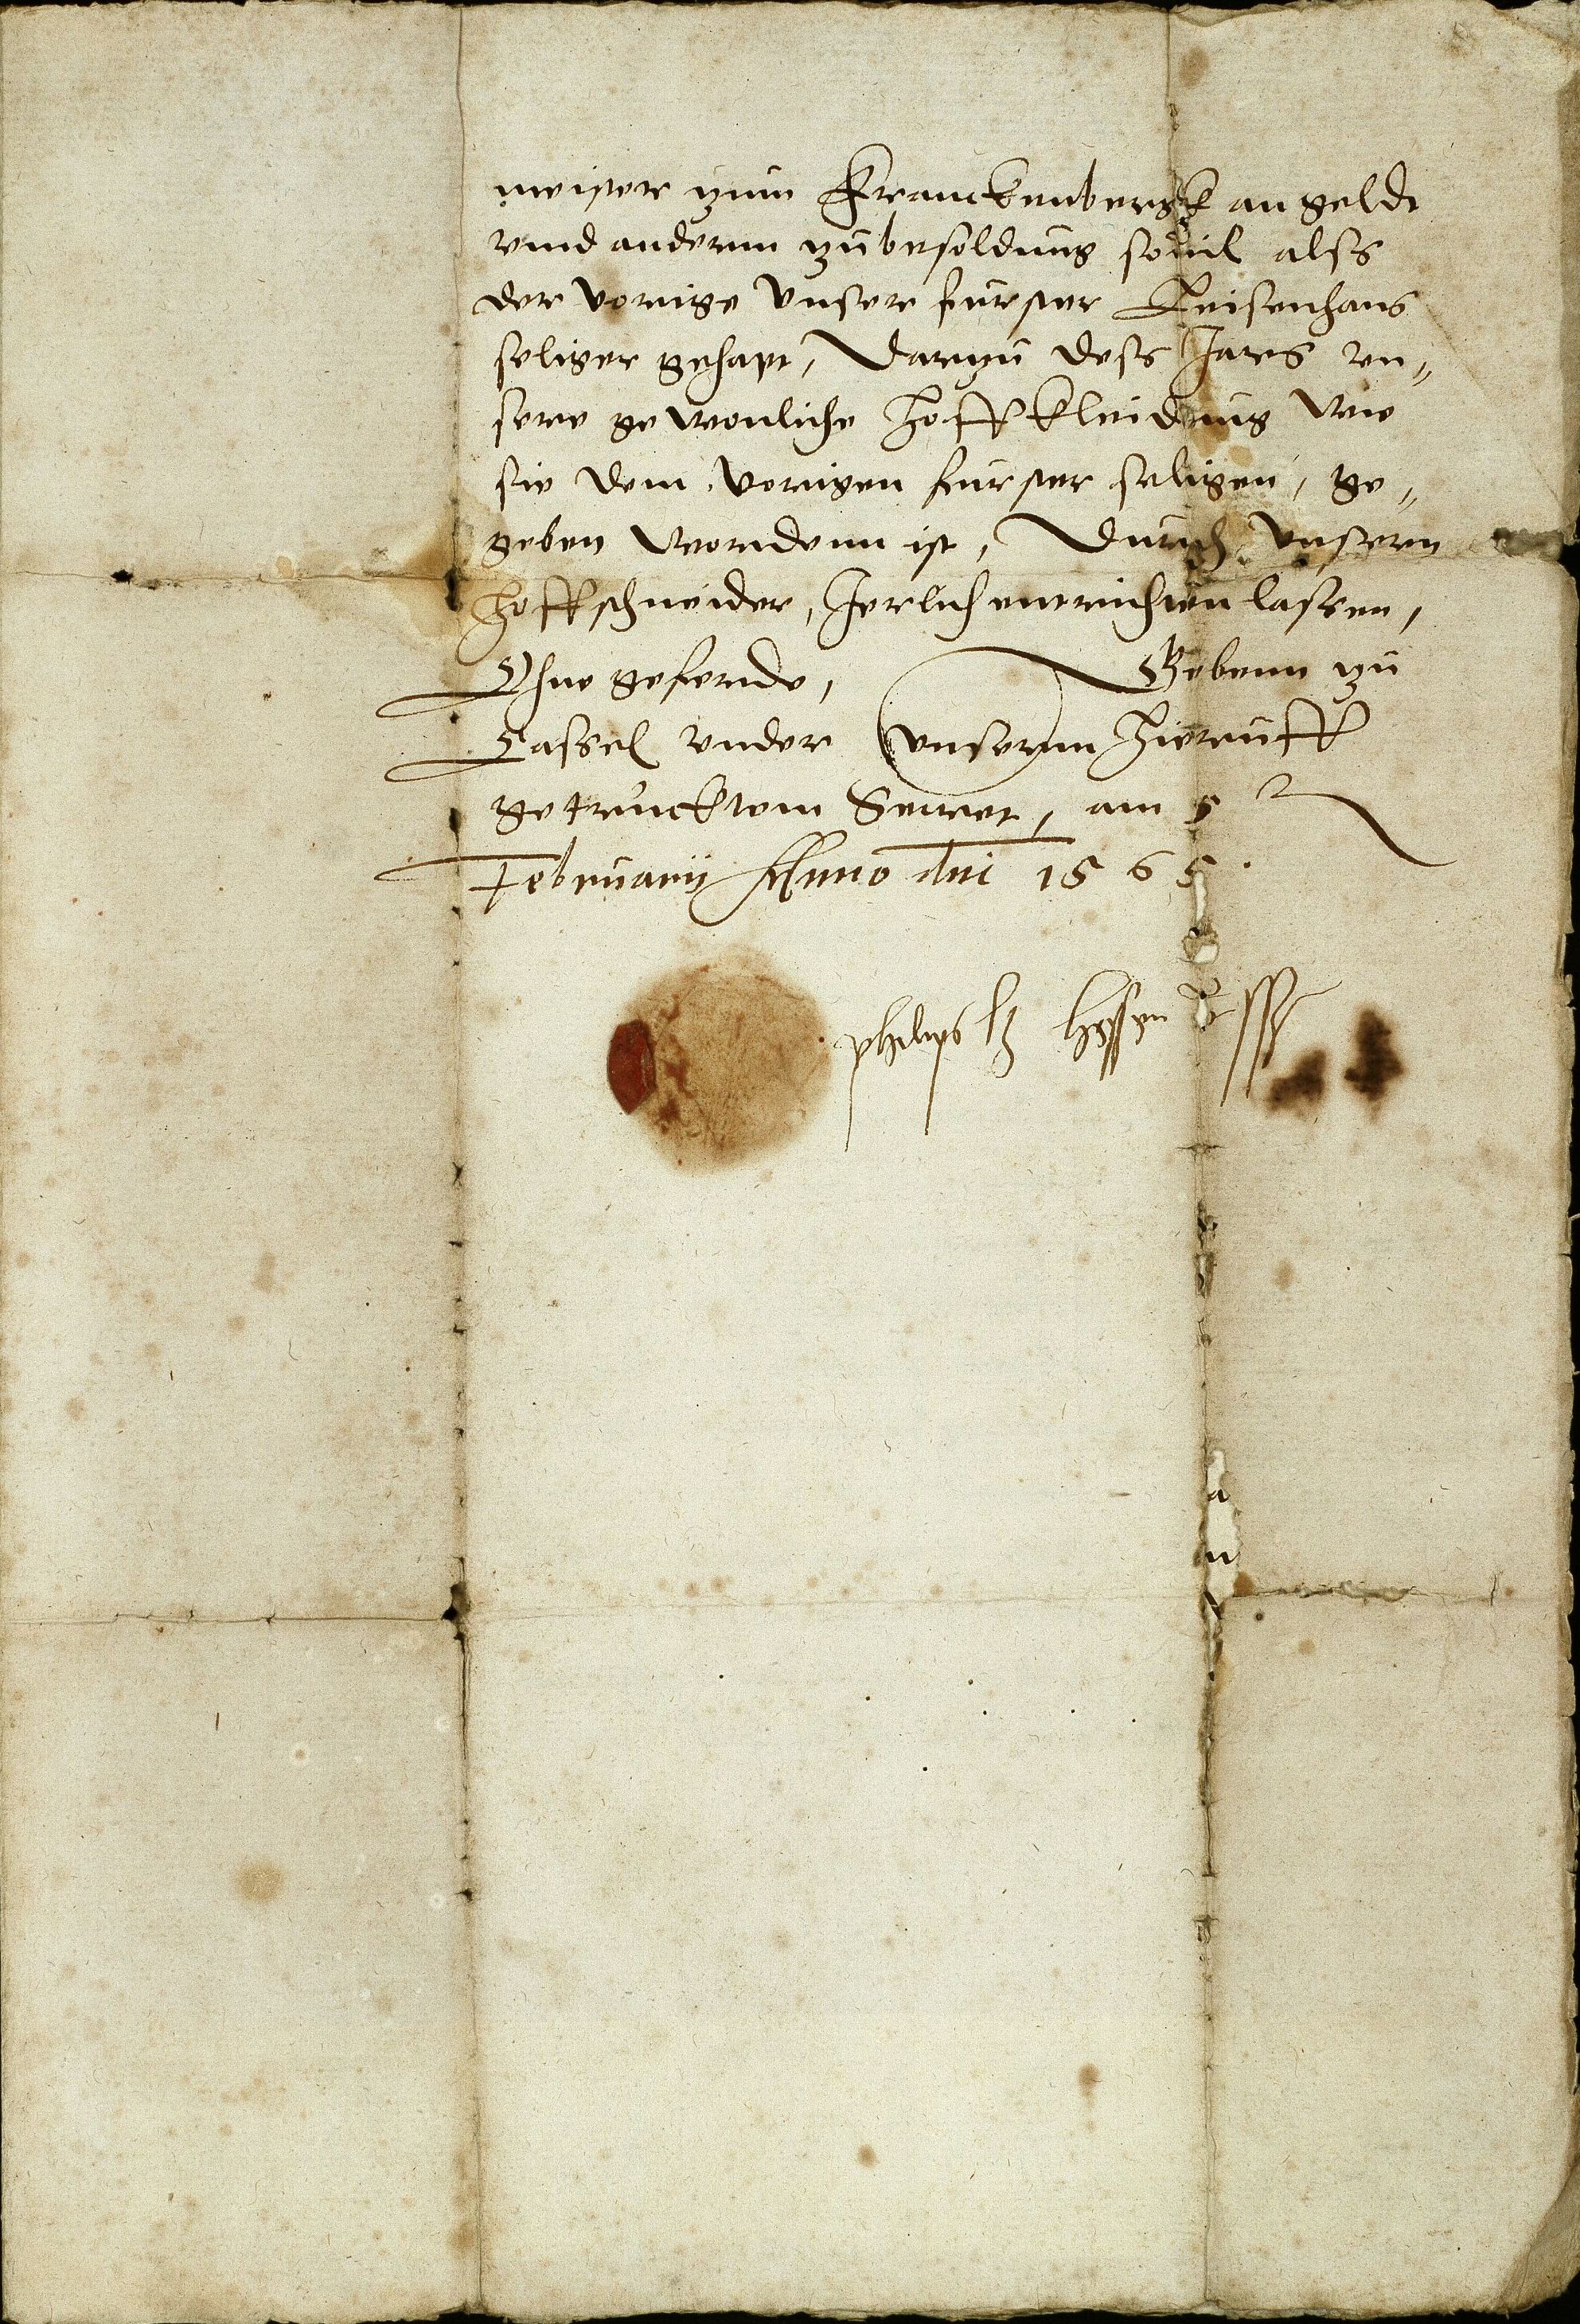 meister zum Franckenbergk an geldt
vnnd anderm zu besoldung souil alss
der vorige vnser furster Reisenhans
seliger gehapt, Darzu dess Jars vn„
sere gewonliche Hoffkleidung wie
sie dem vorigen furster seligen, ge„
geben wordenn ist, Durch vnsern
Hoffschneider, Jerlich entrichten lassen,
Ohne geferde, Gebenn zu
Cassel vnder vnserm hieruff
getrucktem Secret, am 5
February Anno dni 1565.
philips l z hessen